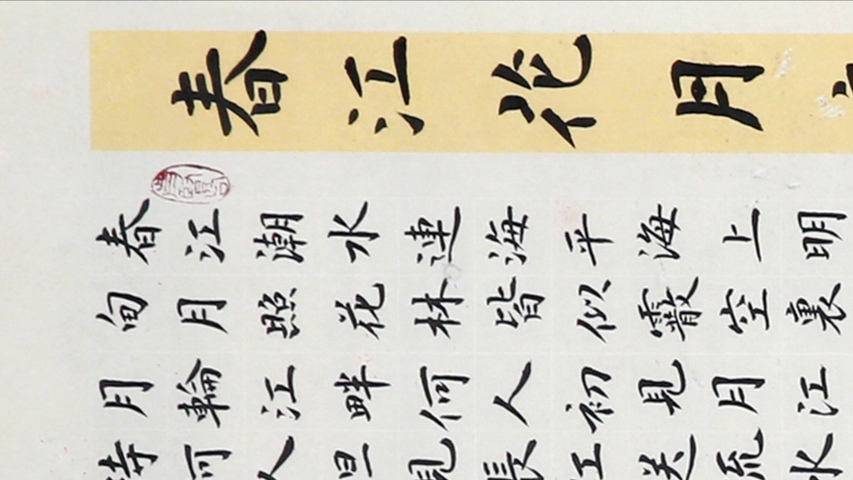 春江花月
春江潮水連海平海上明
甸月照花林皆似霰空裏
月輪江畔何人初見月江
待何人但見長江送流水